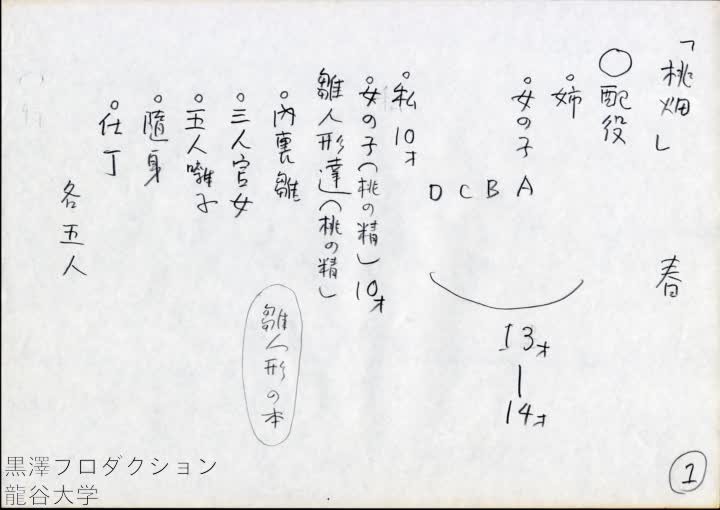 「桃畑」　春
○配役
○姉
○女の子　A
B
C
D
13才
|
14才
○私　10才
○女の子（桃の精）10才
雛人形達（桃の精）
○内裏雛
○三人官女
○五人囃子
○隨身
○仕丁
各五人
雛人形の本
1
黒澤プロダクション
龍谷大学